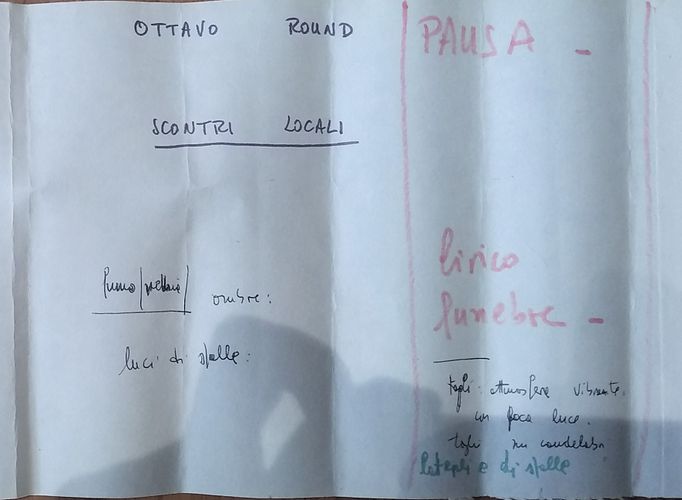 OTTAVO ROUND
SCONTRI LOCALI
fumo ombre:
luci di spalle:
PAUSA -
lirico
funebre -
tagli: atmosfera vibrante.
con poca luce.
tagli su candelabri
laterali e di spalle